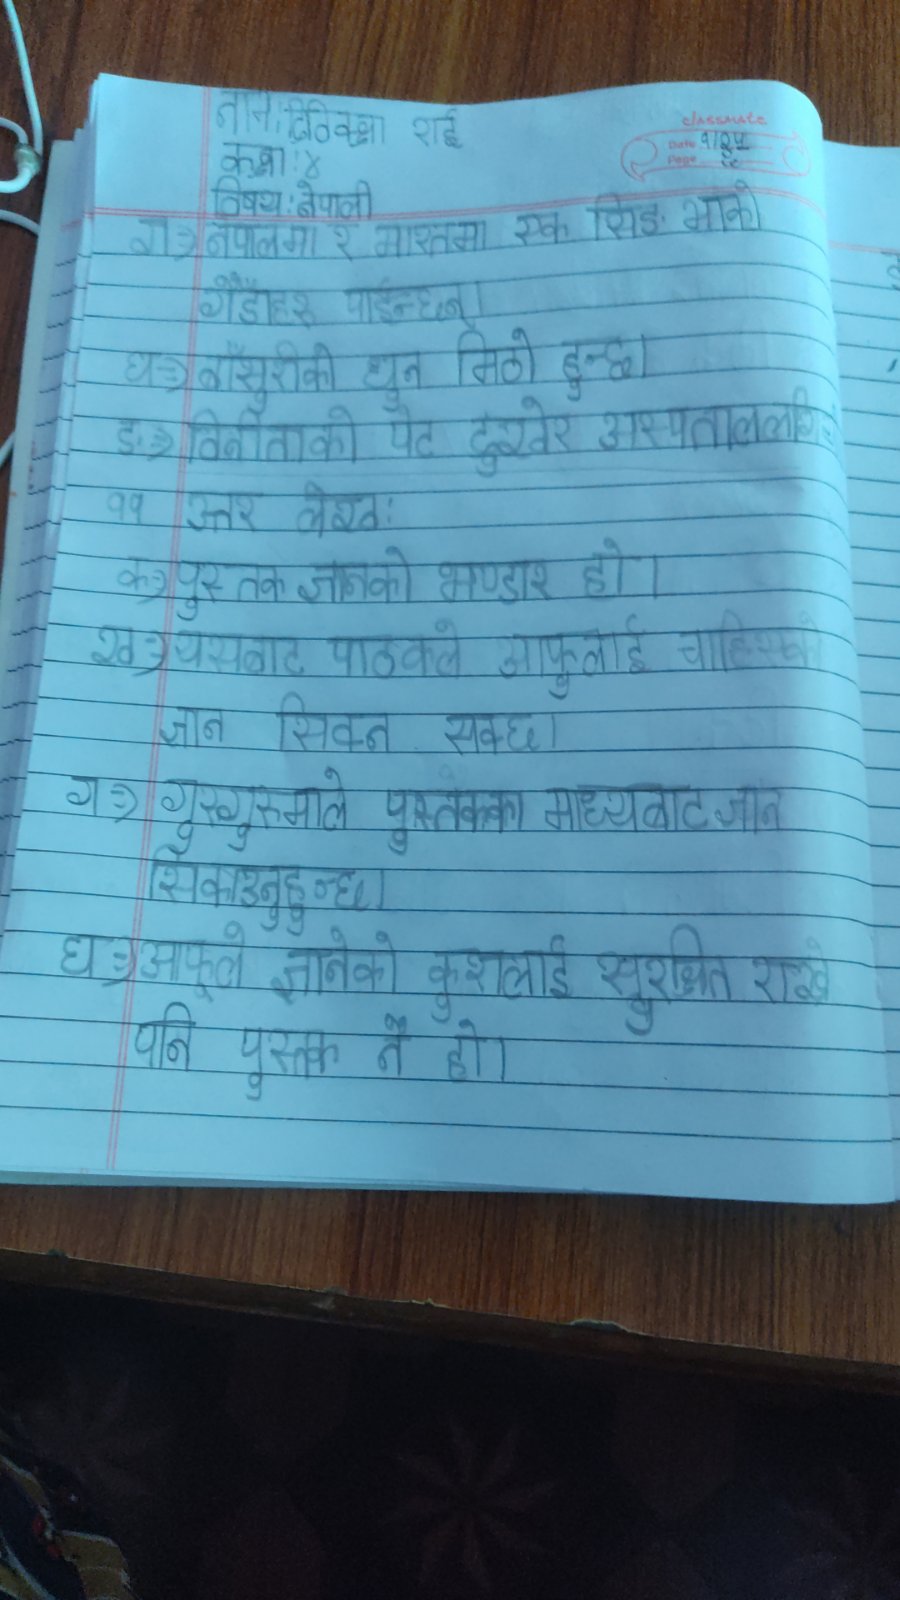 नाम: रितिक्षा राई
classmate
कक्षा: ४
Date ९/२५
Page
विषय: नेपाली
ग→ नेपालमा र भारतमा एक सिङ भाको
गैँडाहरु पाईन्छन्।
घ→ बाँसुरीको धुन मिठो हुन्छ।
ङ→ विनीताको पेट दुखेर अस्पताल
११ उत्तर लेख:
क→ पुस्तक ज्ञानको भण्डार हो।
ख→ यसबाट पाठकले आफुलाई चाहिएको
ज्ञान सिक्न सक्छ।
ग→ गुरुगुरुमाले पुस्तकका माध्यबाट ज्ञान
सिकाउनुहुन्छ।
घ→ आफूले जानेको कुरालाई सुरक्षित राख्ने
पनि पुस्तक नै हो।